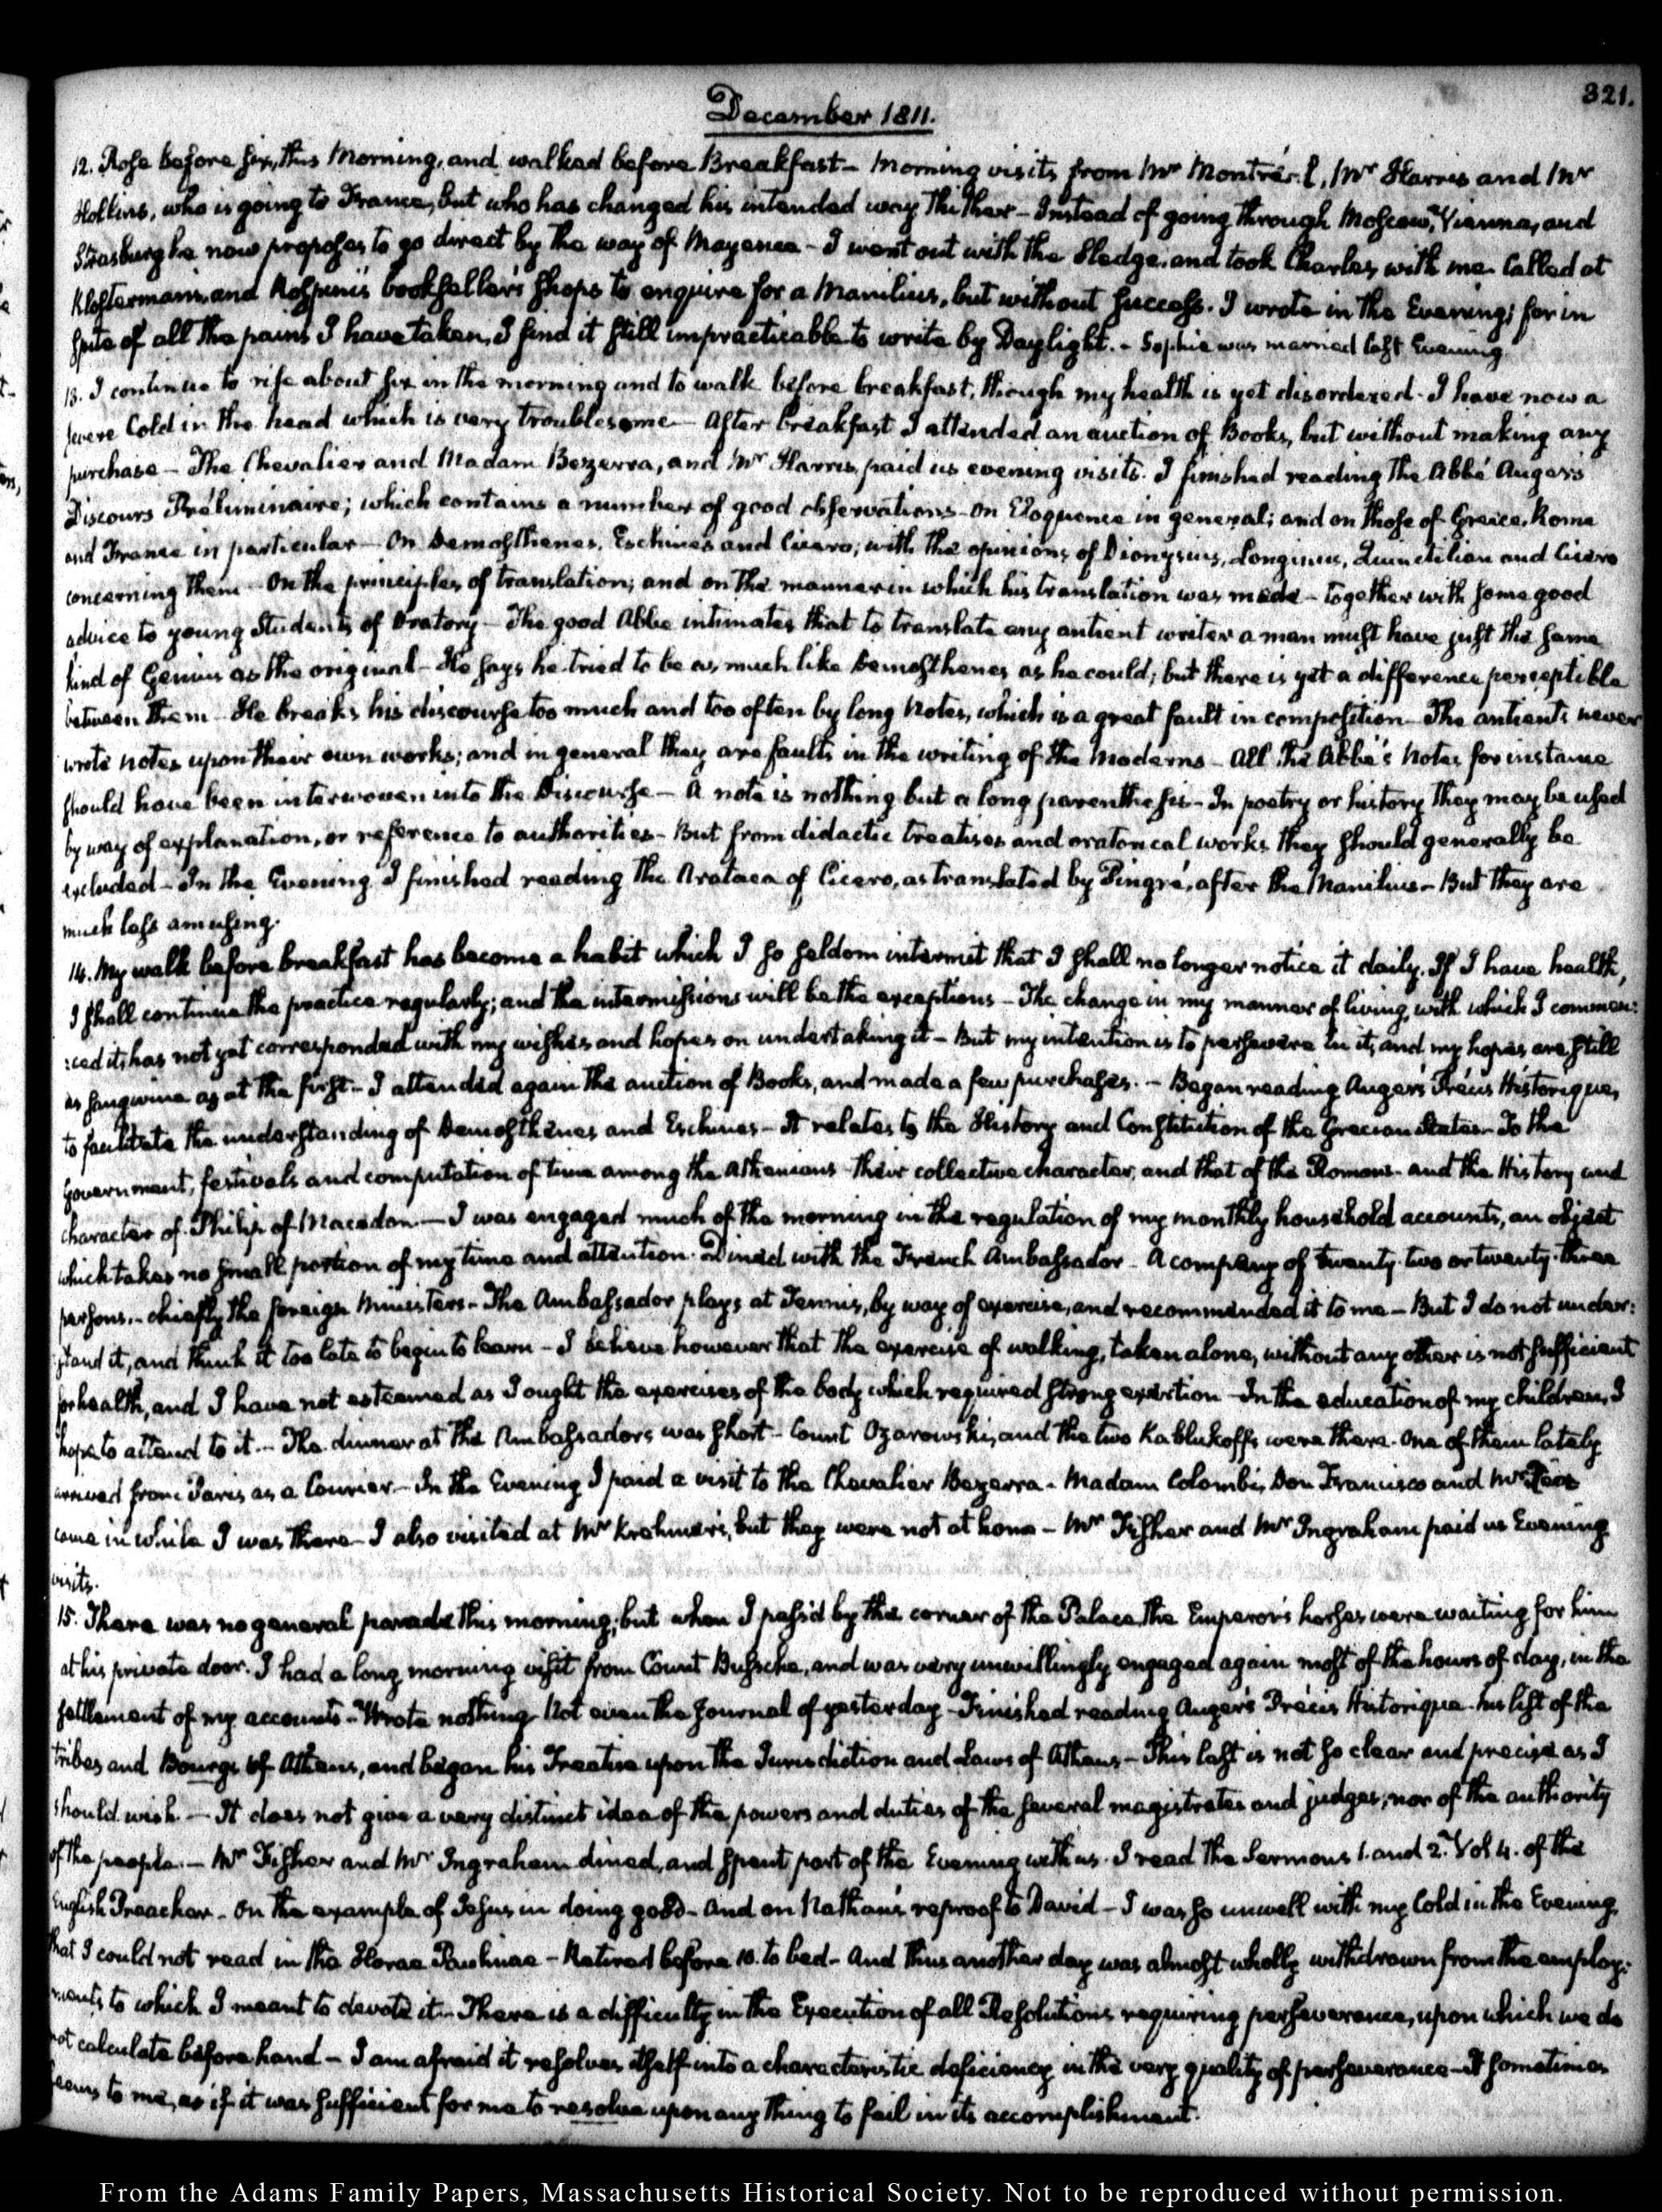 321.
December 1811.
12. Rose before six, this Morning, and walked before Breakfast — Morning visits from Mr Montréal, Mr Harris and Mr
Hollins, who is going to France, but who has changed his intended way thither — Instead of going through Moscow, Vienna, and
Strasburg he now proposes to go direct by the way of Mayence — I went out with the Sledge, and took Charles with me. Called at
Klostermann's and Rospini's bookseller's shops to enquire for a Manilius, but without success. I wrote in the Evening; for in
spite of all the pains I have taken, I find it still impracticable to write by Daylight. — Sophie was married last Evening
13. I continue to rise about six in the morning and to walk before breakfast, though my health is yet disordered. I have now a
severe Cold in the head which is very troublesome — After breakfast I attended an auction of Books, but without making any
purchase — The Chevalier and Madam Bezerra, and Mr Harris, paid us evening visits. I finished reading the Abbé Auger's
Discours Préliminaire; which contains a number of good observations on Eloquence in general; and on those of Greece, Rome
and France in particular — On Demosthenes, Eschines and Cicero; with the opinions of Dionysius, Longinus, Quinctilian and Cicero
concerning them — On the principles of translation; and on the manner in which his translation was made — together with some good
advice to young Students of Oratory — The good Abbé intimates that to translate any antient writer a man must have just the same
kind of Genius as the original — He says he tried to be as much like Demosthenes as he could; but there is yet a difference perceptible
between them — He breaks his discourse too much and too often by long Notes, which is a great fault in composition — The antients never
wrote notes upon their own works; and in general they are faults in the writing of the Moderns — All the Abbé's Notes for instance
should have been interwoven into the Discourse — A note is nothing but a long parenthesis — In poetry or history they may be used
by way of explanation, or reference to authorities — But from didactic treatises and oratorical works they should generally be
excluded — In the Evening I finished reading the Arataea of Cicero, as translated by Pingré, after the Manilius — But they are
much less amusing.
14. My walk before breakfast has become a habit which I so seldom intermit that I shall no longer notice it daily. If I have health,
I shall continue the practice regularly; and the intermissions will be the exceptions — The change in my manner of living, with which I commen:
:ced it, has not yet corresponded with my wishes and hopes on undertaking it — But my intention is to persevere in it, and my hopes are still
as sanguine as at the first — I attended again the auction of Books, and made a few purchases. — Began reading Auger's Précis Historique,
to facilitate the understanding of Demosthenes and Eschines — It relates to the History and Constitution of the Grecian States — To the
Government, festivals and computation of time among the Athenians — their collective character, and that of the Romans — and the History and
character of Philip of Macedon. — I was engaged much of the morning in the regulation of my monthly household accounts, an object
which takes no small portion of my time and attention. Dined with the French Ambassador — A company of twenty-two or twenty-three
persons. — chiefly the foreign Ministers — The Ambassador plays at Tennis, by way of exercise, and recommended it to me — But I do not under:
:stand it, and think it too late to begin to learn — I believe however that the exercise of walking, taken alone, without any other is not sufficient
for health, and I have not esteemed as I ought the exercises of the body which required strong exertion — In the education of my children, I
hope to attend to it. — The dinner at the Ambassador's was short — Count Ozarowski, and the two Kablukoffs were there. One of them lately
arrived from Paris as a Courier — In the Evening I paid a visit to the Chevalier Bezerra — Madam Colombi, Don Francisco and Mr
came in while I was there — I also visited at Mr Krehmer's, but they were not at home — Mr Fisher and Mr Ingraham paid us Evening
visits.
15. There was no general parade this morning; but when I pass'd by the corner of the Palace the Emperor's horses were waiting for him
at his private door. I had a long morning visit from Count Bussche, and was very unwillingly engaged again most of the hours of day, in the
settlement of my accounts — Wrote nothing — Not even the Journal of yesterday — Finished reading Auger's Précis Historique — his list of the
tribes and Bourgs of Athens, and began his Treatise upon the Jurisdiction and Laws of Athens — This last is not so clear and precise as I
should wish — It does not give a very distinct idea of the powers and duties of the several magistrates and judges; nor of the authority
of the people. — Mr Fisher and Mr Ingraham dined, and spent part of the Evening with us. I read the Sermons 1. and 2. Vol 4. of the
English Preacher — On the example of Jesus in doing good — And on Nathan's reproof to David — I was so unwell with my Cold in the Evening,
that I could not read in the Horae Paulinae — Retired before 10. to bed — And thus another day was almost wholly withdrawn from the employ:
:ments to which I meant to devote it. — There is a difficulty in the Execution of all Resolutions requiring perseverance, upon which we do
not calculate beforehand — I am afraid it resolves itself into a characteristic deficiency in the very quality of perseverance — It sometimes
seems to me, as if it was sufficient for me to resolve upon any thing to fail in its accomplishment.
From the Adams Family Papers, Massachusetts Historical Society. Not to be reproduced without permission.